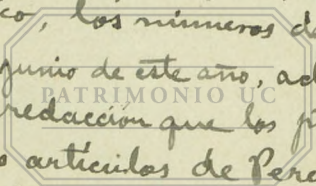 co, los números de
junio de este año, ad
PATRIMONIO UC
redacción que los p
artículos de Pere